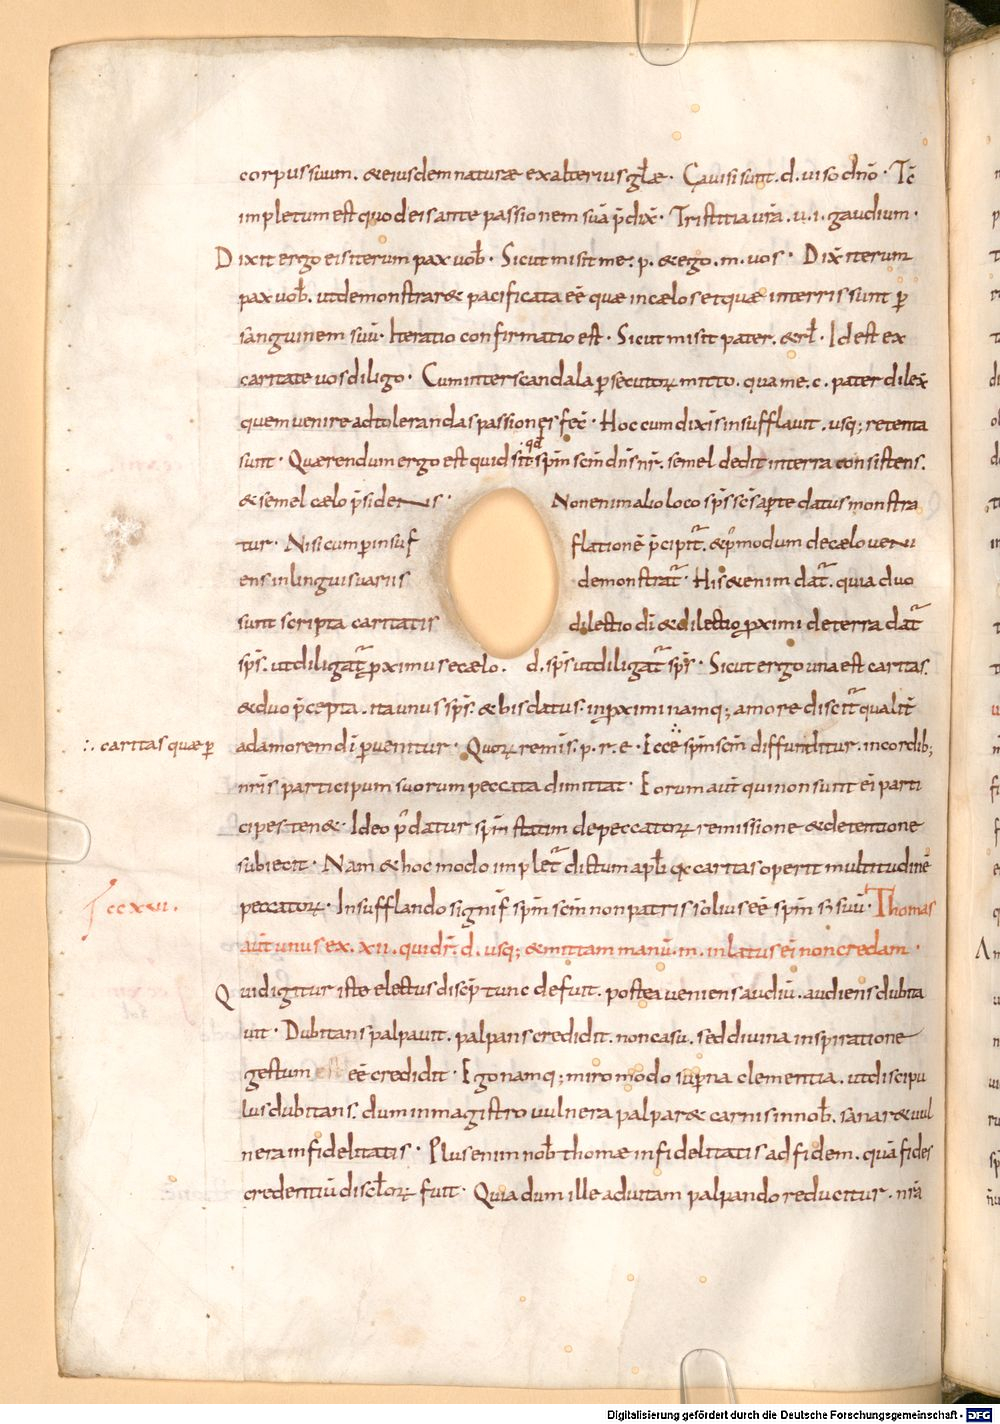 corpus suum. & eiusdem naturae ex alterius gl̅ae. Gauisi sunt. d. uiso dn̅o. Tc̅
impletum est quod eis ante passionem suā p̄dix̄. Tristitia ur̅a. u. i. gaudium.
Dixit ergo eis iterum pax uob̄. Sicut misit me. p. & ego. m. uos. Dix̄ iterum
pax uob̄. ut demonstrar& pacificata eē quae in caelo s& quae in terris sunt p̄
sanguinem suū. Iteratio confirmatio est. Sicut misit pater. & rl̄. Id est ex
caritate uos diligo. Cum inter scandala p̄secutoꝝ mitto. qua me. c. pater dilex̄
quem uenire ad tolerandas passiones fec̄. Hoc cum dixis& insufflauit. usq; retenta
sunt. Quaerendum ergo est quid sit qd̄ sp̄m sc̄m dn̄s nr̄. semel dedit in terra consistens.
& semel caelo p̄sidens. Non enim alio loco sp̄s sc̄s apte datus monstra
tur. Nisi cum p̄ insuf flationē p̄cipit̄. & p̄modum de caelo ueni
ens in linguis uariis demonstrat̄. His & enim dat̄. quia duo
sunt scripta caritatis dilectio di̅ & dilectio proximi de terra dat̄
sp̄s. ut diligat̄ proximus e caelo. d. sp̄s ut diligat̄ sp̄s. Sicut ergo una est caritas.
& duo p̄cepta. ita unus sp̄s. & bis datus. in proximi namq; amore discit̄ qualit̄
∴ caritas quae p̄
ad amorem di̅ p̄uenitur. Quoꝝ remis. p. r. e. Ecce sp̄m sc̄m diffunditur. in cordib;
nr̄is participum suorum peccata dimittat. Eorum aut̄ qui non sunt ei parti
cipes ten&. Ideo p̄ datur sp̄m statim de peccatoꝝ remissione & detentione
subiecit. Nam & hoc modo implet̄ dictum apl̄i qa caritas operit multitudinē
ccxvi.
peccatoꝝ. Insufflando signif̄ sp̄m sc̄m non patris solius eē sp̄m s; suū. Thomas
aut̄ unus ex. xii. qui dr̄. d. usq; & mittam manū. m. in latus ei non credam.
Quid igitur iste electus discip̄ tunc defuit. postea ueniens audiū. audiens dubita
uit. Dubitans palpauit. palpans credidit. non casu. sed diuina inspiratione
gestum eē credidit. Ego namq; miro modo sup̄na clementia. ut discipu
lus dubitans. dum in magistro uulnera palpar& carnis in nob̄. sanar& uul
nera infidelitatis. Plus enim nob̄ thomae infidelitatis ad fidem. quā fides
credentiū discl̄oꝝ fuit. Quia dum ille ad uitam palpando reducitur. nr̄a
Digitalisierung gefördert durch die Deutsche Forschungsgemeinschaft - DFG